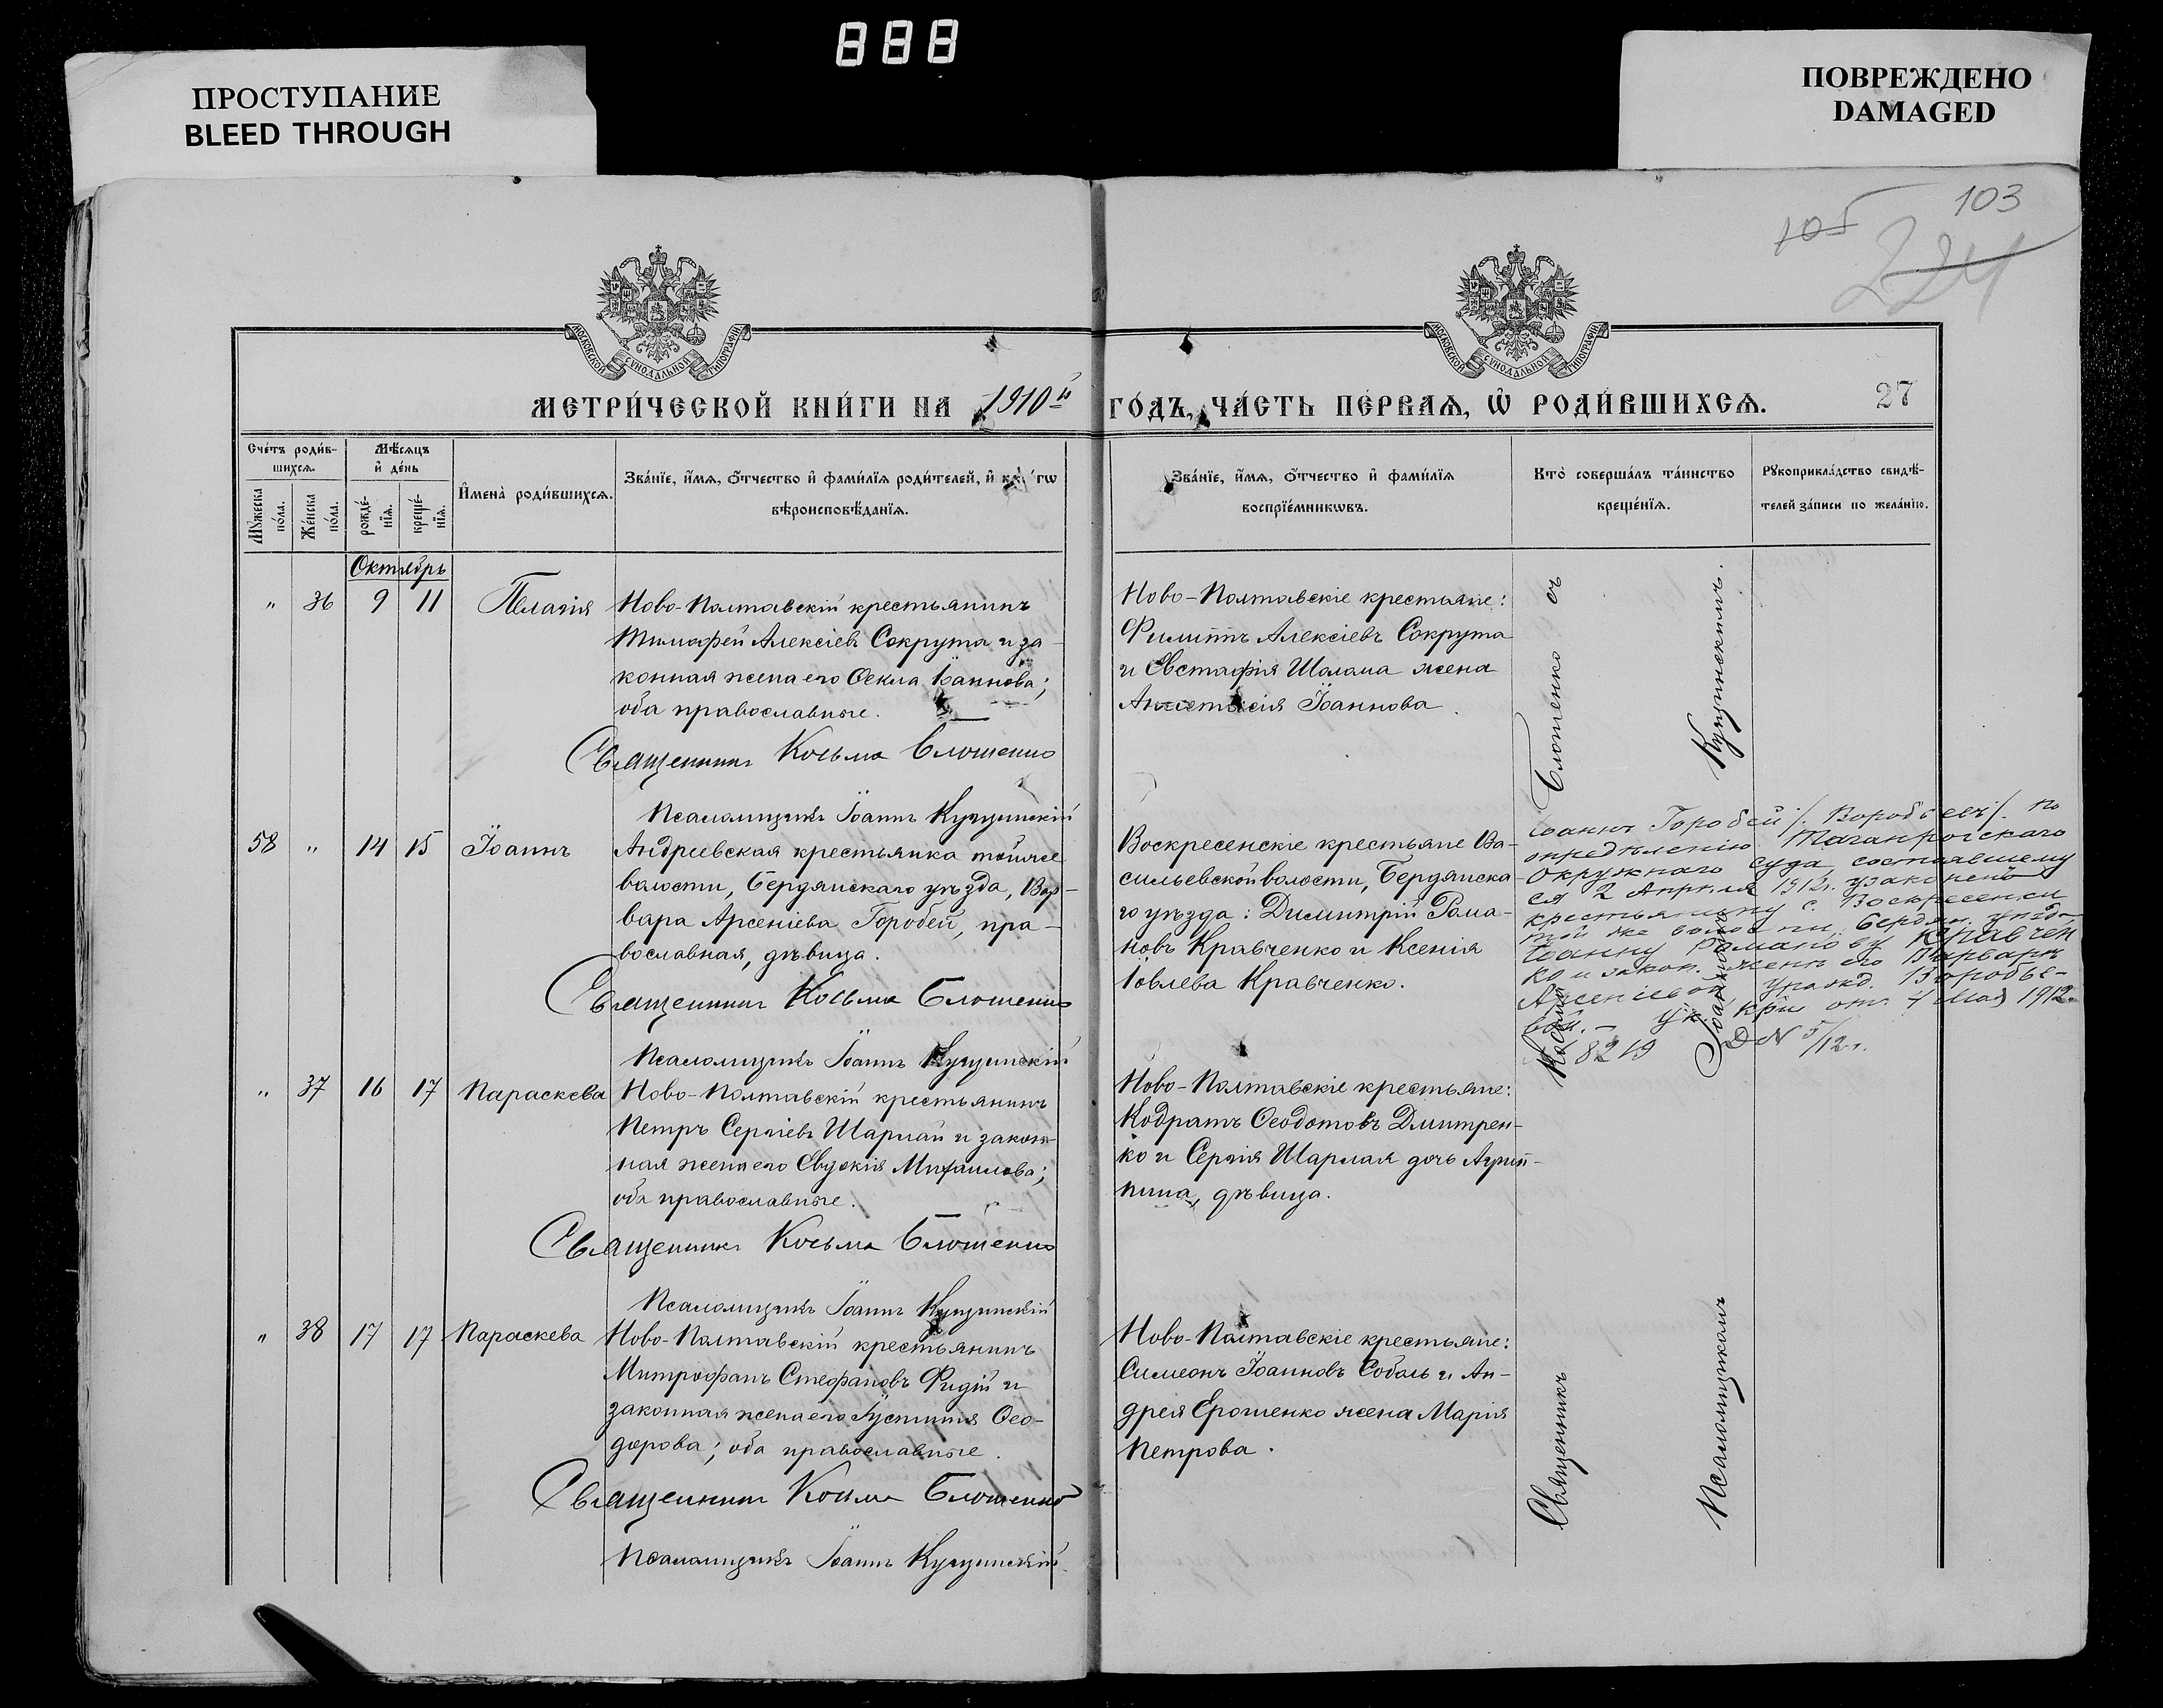 888
ПРОСТУПАНИЕ
BLEED THROUGH
ПОВРЕЖДЕНО
DAMAGED
103
105
224
МОСКОВСКОЙ СѴНОДАЛЬНОЙ ТИПОГРАФІИ
МОСКОВСКОЙ СѴНОДАЛЬНОЙ ТИПОГРАФІИ
МЕТРИ́ЧЕСКОЙ КНИ́ГИ НА 1910й ГО́ДЪ, ЧА́СТЬ ПЕ́РВАѦ, Ѡ РОДИ́ВШИХСѦ.
27
Сче́тъ роди́в-
шихсѧ.
Мꙋ́жеска по́ла.
Же́нска по́ла.
Мѣ́сѧцъ
и҆ де́нь
рожде́-
нїѧ.
креще́-
нїѧ.
И҆мена̀ роди́вшихсѧ.
Зва́нїе, и҆́мѧ, ѻ҆́тчество и҆ фами́лїѧ роди́телей, и҆ как гѡ
вѣроисповѣ́данїѧ.
Зва́нїе, и҆́мѧ, ѻ҆́тчество и҆ фами́лїѧ
воспрїе́мникѡвъ.
Кто̀ соверша́лъ та́инство
креще́нїѧ.
Рꙋкоприкла́дство свидѣ́-
телей за́писи по жела́нїю.
Октябрь
" 36 9 11 Пелагія
Ново-Полтавскій крестьянинъ
Тимофей Алексіевъ Сокрута и за-
конная жена его Ѳекла Іоаннова;
оба православные.
Священникъ Косьма Блошенко
Псаломщикъ Іоаннъ Кущинскій
Ново-Полтавскіе крестьяне:
Филиппъ Алексіевъ Сокрута
и Евстафія Шолома жена
Анастасія Іоаннова
58 " 14 15 Іоаннъ
Андреевская крестьянка тойже
волости, Бердянскаго уѣзда, Вар-
вара Арсеніева Горобей, пра-
вославная, дѣвица.
Священникъ Косьма Блошенко
Псаломщикъ Іоаннъ Кущинскій
Воскресенскіе крестьяне Ва-
сильевской волости, Бердянска-
го уѣзда: Димитрій Рома-
новъ Кравченко и Ксенія
Іовлева Кравченко.
Іоаннъ Горобей /Воробьевъ/. По
опредѣленію Таганрогскаго
Окружнаго суда, состоявшему
ся 2 Апрѣля 1912г. узаконенъ
крестьянину с. Воскресенки
той же волости, Бердян. уѣзда
Іоанну Романову Кравчен
ко и закон. женѣ его Варварѣ
Арсеніевой, урожд. Воробье-
вой. – Ук. от. 4 Мая 1912
8219 Д N 5/12 г.
" 37 16 17 Параскева
Ново-Полтавскій крестьянинъ
Петръ Сергіевъ Шармай и закон-
ная жена его Евдокія Михаилова;
оба православные.
Священникъ Косьма Блошенко
Псаломщикъ Іоаннъ Кущинскій
Ново-Полтавскіе крестьяне:
Кодратъ Ѳеодотовъ Дмитрен-
ко и Сергія Шармая дочь Агрип-
пина, дѣвица.
" 38 17 17 Параскева
Ново-Полтавскій крестьянинъ
Митрофанъ Стефановъ Фидій и
законная жена его Іустинія Ѳео-
дорова; оба православные.
Священникъ Косьма Блошенко
Псаломщикъ Іоаннъ Кущинскій
Ново-Полтавскіе крестьяне:
Симеонъ Іоанновъ Соболь и Ан-
дрея Ерошенко жена Марія
Петрова.
Священникъ Косьма Блошенко съ
Псаломщикомъ Іоанномъ Кущинскимъ.